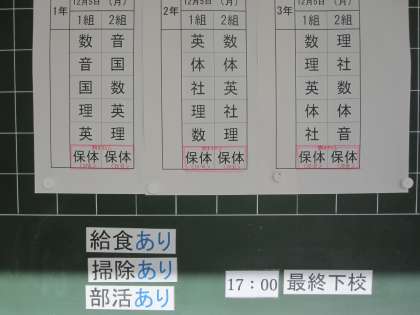 1年 12月5日 (月)
1組 2組
数 音
音 国
国 数
理 英
英 理
保体 保体
2年 12月5日 (月)
1組 2組
英 数
体 体
社 英
国 社
数 理
保体 保体
3年 12月5日 (月)
1組 2組
数 理
理 社
英 数
体 体
社 音
保体 保体
給食あり
掃除あり
部活あり
17:00 最終下校